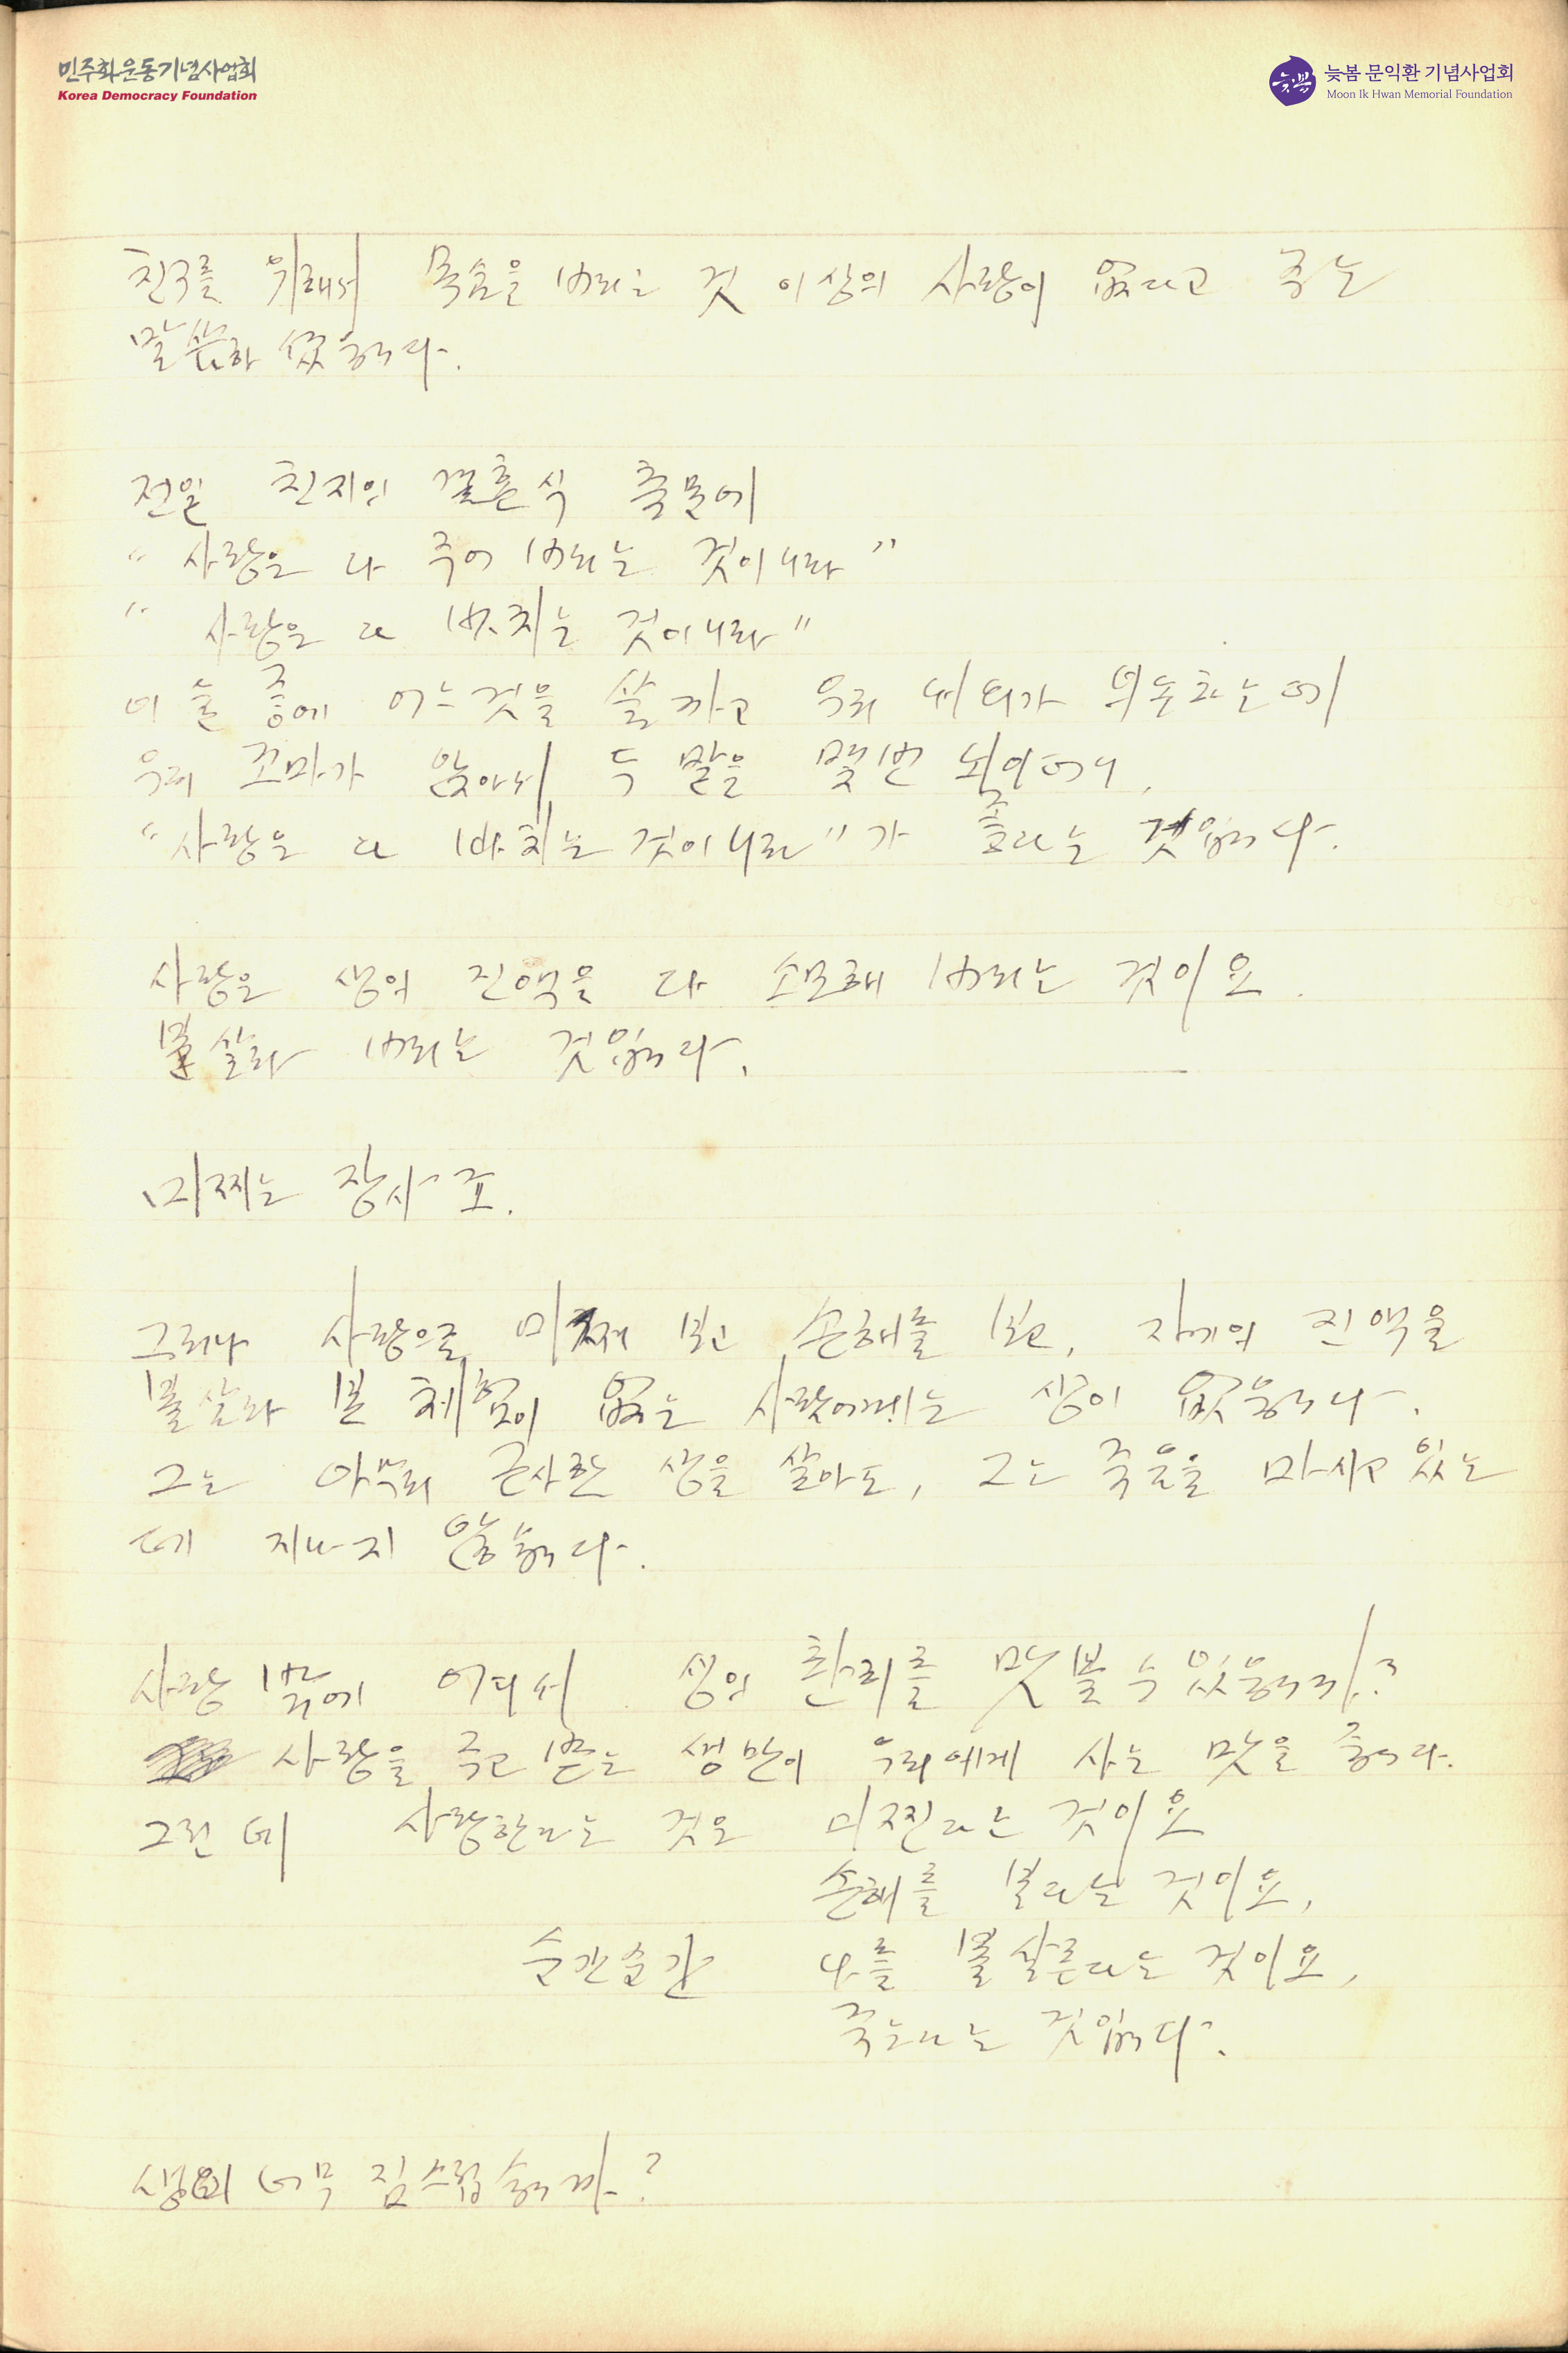 민주화운동기념사업회
Korea Democracy Foundation
늦봄
늦봄 문익환 기념사업회
Moon Ik Hwan Memorial Foundation
친구를 위해서 목숨을 버리는 것 이상의 사랑이 없다고 주는
말씀하셨습니다.
전일 친지의 결혼식 축문에
“사랑은 다 주어 버리는 것이니라”
“사랑은 다 바치는 것이니라”
이 둘 중에 어느것을 쓸까고 우리 내외가 의논하는데
우리 꼬마가 앉아서 두 말을 몇번 뇌이더니,
“사랑은 다 바치는 것이니라”가 좋다는 것입니다.
사랑은 생의 진액을 다 소모해 버리는 것이요.
불살라 버리는 것입니다.
미찌는 장사죠.
그러나 사랑으로 미쪄 보고 손해를 보고, 자기의 진액을
불살라 본 체험이 없는 사람에게는 생이 없습니다.
그는 아무리 근사한 생을 살아도, 그는 죽음을 마시고 있는
데 지나지 않습니다.
사랑 밖에 어디서 생의 환희를 맛볼 수 있습니까?
사랑을 주고 받는 생만이 우리에게 사는 맛을 줍니다.
그런데 사랑한다는 것은 미찐다는 것이요
손해를 본다는 것이요,
순간순간 나를 불살른다는 것이요,
죽는다는 것입니다.
너무 짐스럽습니까?